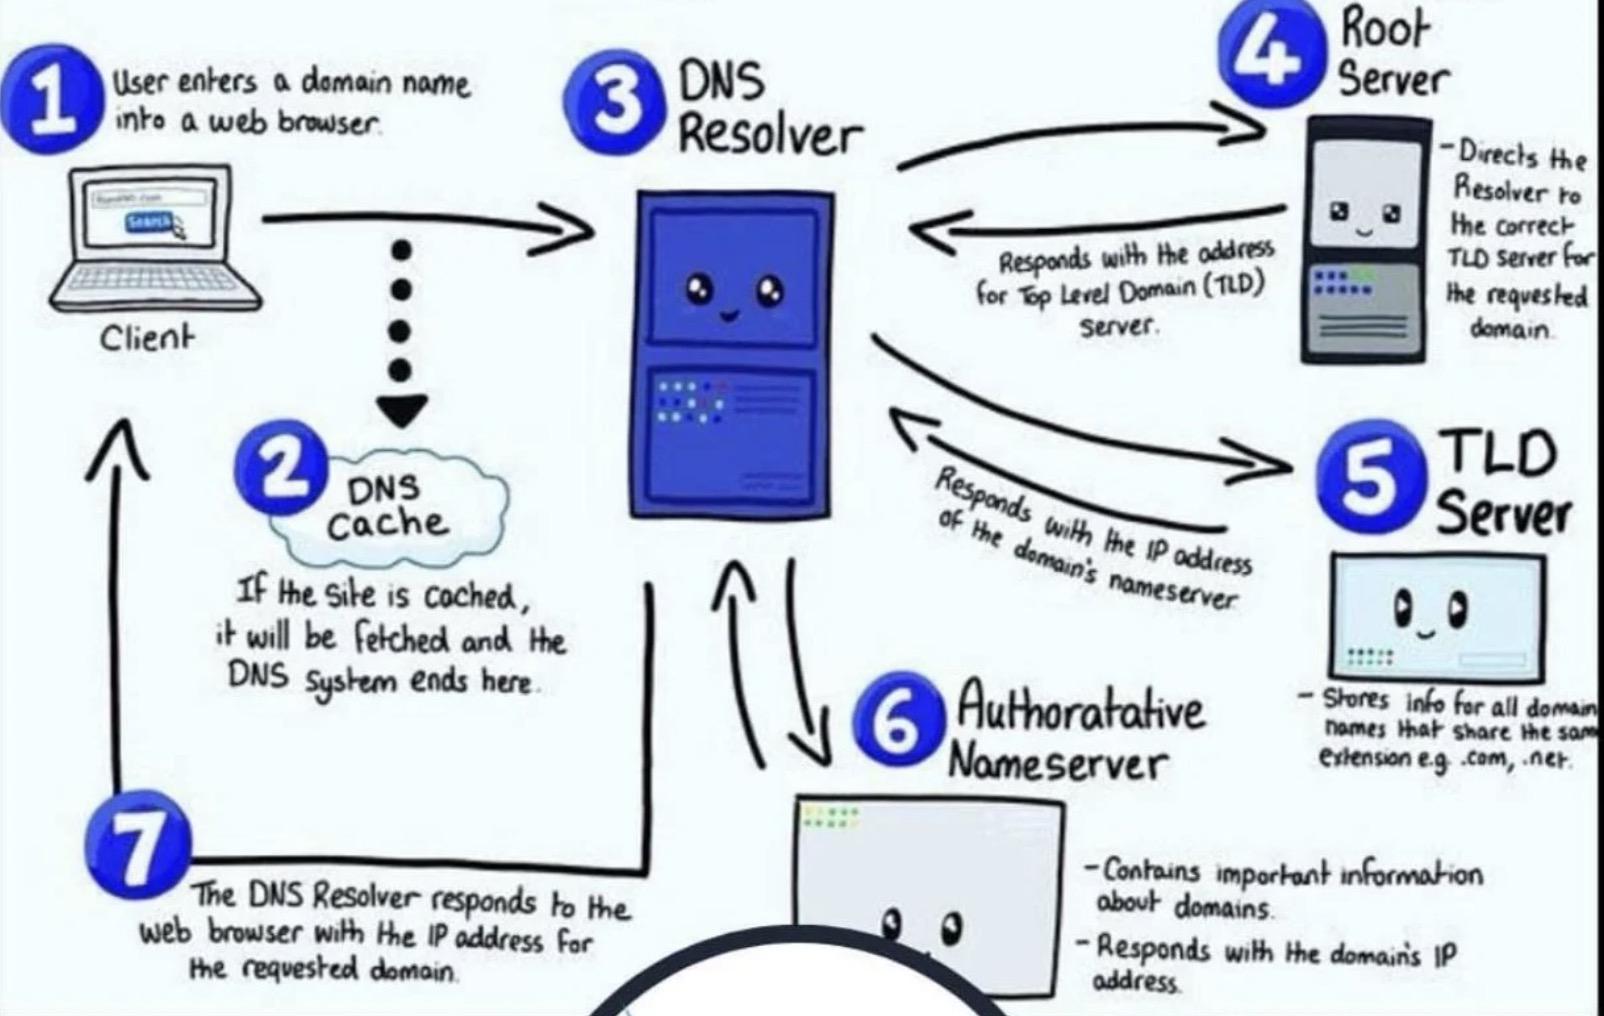 1
User enters a domain name
into a web browser.
Search
Client
2
DNS
Cache
If the site is cached,
it will be fetched and the
DNS system ends here.
3
DNS
Resolver
4
Root
Server
- Directs the
Resolver to
the correct
TLD server for
the requested
domain.
Responds with the address
for Top Level Domain (TLD)
server.
5
TLD
Server
Responds with the IP address
of the domain's nameserver
- Stores info for all domain
names that share the sam
extension e.g. .com, .net.
6
Authoratative
Nameserver
- Contains important information
about domains.
- Responds with the domain's IP
address.
7
The DNS Resolver responds to the
web browser with the IP address for
the requested domain.